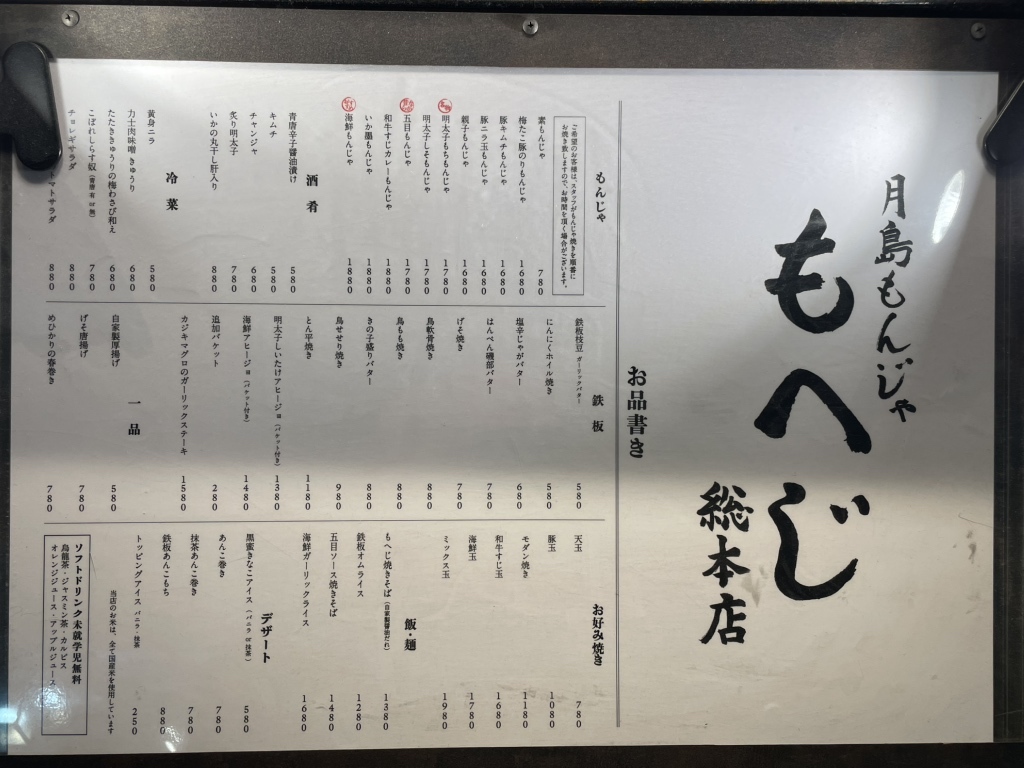 月島もんじゃ
もへじ
総本店
お品書き
もんじゃ
ご希望のお客様は、スタッフがもんじゃ焼きを順番に
お焼き致しますので、お時間を頂く場合がございます。
素もんじゃ 780
梅たこ豚のりもんじゃ 1680
豚キムチもんじゃ 1680
豚ニラ玉もんじゃ 1680
親子もんじゃ 1680
明太子もちもんじゃ 1780
明太子しそもんじゃ 1780
五目もんじゃ 1780
和牛すじカレーもんじゃ 1880
いか墨もんじゃ 1880
海鮮もんじゃ 1880
酒肴
青唐辛子醤油漬け 580
キムチ 580
チャンジャ 680
炙り明太子 780
いかの丸干し肝入り 880
冷菜
黄身ニラ 580
力士肉味噌きゅうり 680
たたききゅうりの梅わさび和え 680
こぼれしらす奴(青唐 有 or 無) 780
チョレギサラダ 880
トマトサラダ 880
鉄板
鉄板枝豆 ガーリックバター 580
にんにくホイル焼き 580
塩辛じゃがバター 680
はんぺん磯部バター 780
げそ焼き 780
鳥軟骨焼き 880
鳥もも焼き 880
きの子盛りバター 880
鳥せせり焼き 980
とん平焼き 1180
明太子しいたけアヒージョ(バケット付き) 1380
海鮮アヒージョ(バケット付き) 1480
追加バケット 280
カジキマグロのガーリックステーキ 1580
一品
自家製厚揚げ 580
げそ唐揚げ 780
めひかりの春巻き 780
お好み焼き
天玉 780
豚玉 1080
モダン焼き 1180
和牛すじ玉 1680
海鮮玉 1780
ミックス玉 1980
飯・麺
もへじ焼きそば(自家製醤油だれ) 1380
鉄板オムライス 1280
五目ソース焼きそば 1480
海鮮ガーリックライス 1680
デザート
黒蜜きなこアイス(バニラ or 抹茶) 580
あんこ巻き 780
抹茶あんこ巻き 780
鉄板あんこもち 880
トッピングアイス バニラ・抹茶 250
当店のお米は、全て国産米を使用しています
ソフトドリンク未就学児無料
烏龍茶・ジャスミン茶・カルピス
オレンジジュース・アップルジュース